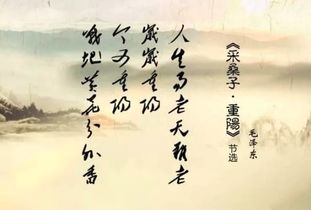 《采桑子·重陽》
节选
毛泽东
人生易老天难老
岁岁重阳
今又重阳
战地黄花分外香